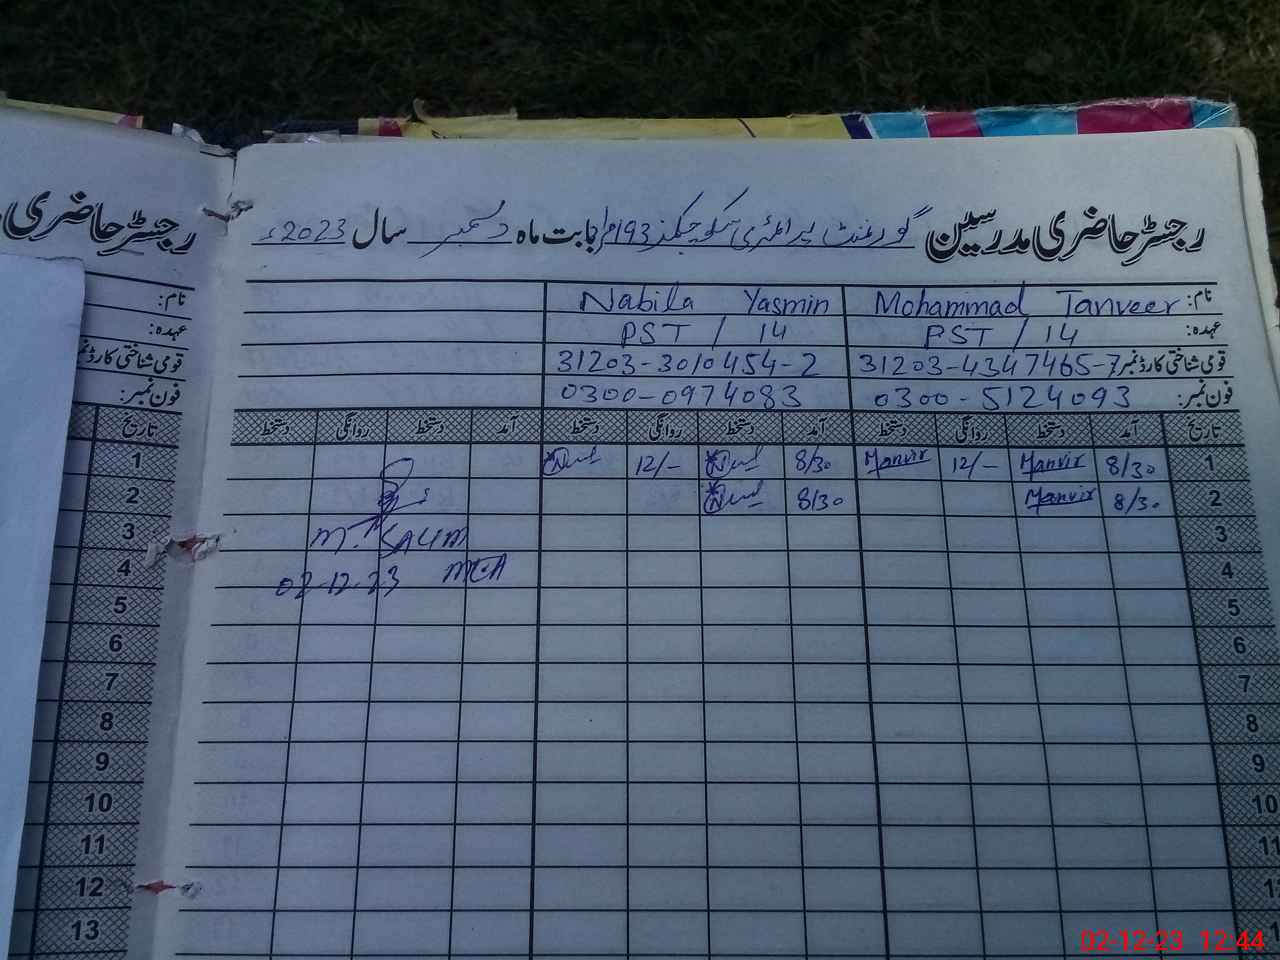 رجسٹر حاضری مدرسین گورنمنٹ پرائمری سکول چک نمبر 193/مراد بابت ماہ دسمبر سال 2023ء
نام: Mohammad Tanveer Nabila Yasmin
عہدہ: PST / 14 PST / 14
قومی شناختی کارڈ نمبر 31203-4347465-7 31203-3010454-2
فون نمبر: 0300-5124093 0300-0974083
تاریخ آمد دستخط روانگی دستخط آمد دستخط روانگی دستخط آمد دستخط روانگی دستخط
1 8/30 Manvir 12/- Manvir 8/30 12/-
2 8/30 Manvir 8/30
3 M. SALIM
4 MEA 02-12-23
5
6
7
8
9
10
11
12
رجسٹر حاضری
نام:
عہدہ:
قومی شناختی کارڈ
فون نمبر:
تاریخ
1
2
3
4
5
6
7
8
9
10
11
12
13
02-12-23 12:44